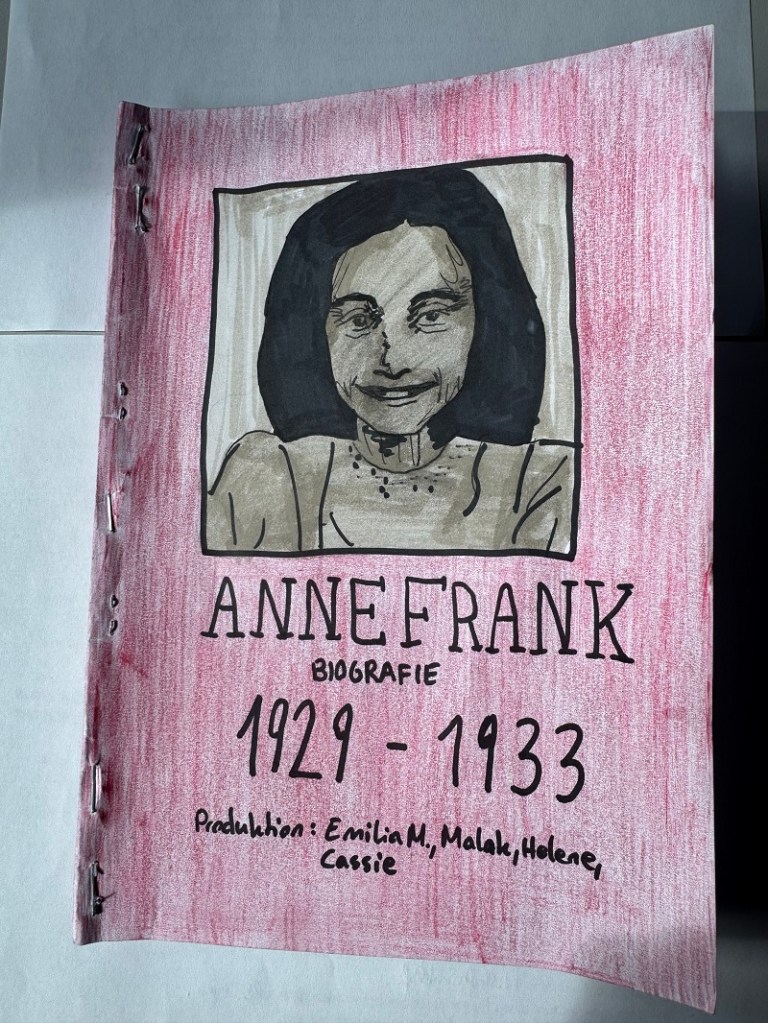 ANNE FRANK
BIOGRAFIE
1929 - 1933
Produktion: Emilia M., Malak, Helene,
Cassie